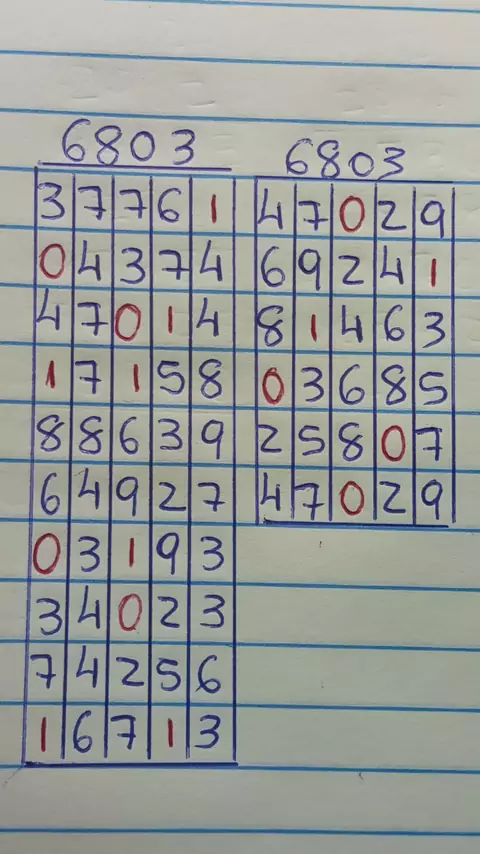 6803
37761
04374
47014
17158
88639
64927
03193
34023
74256
16713
6803
47029
69241
81463
03685
25807
47029